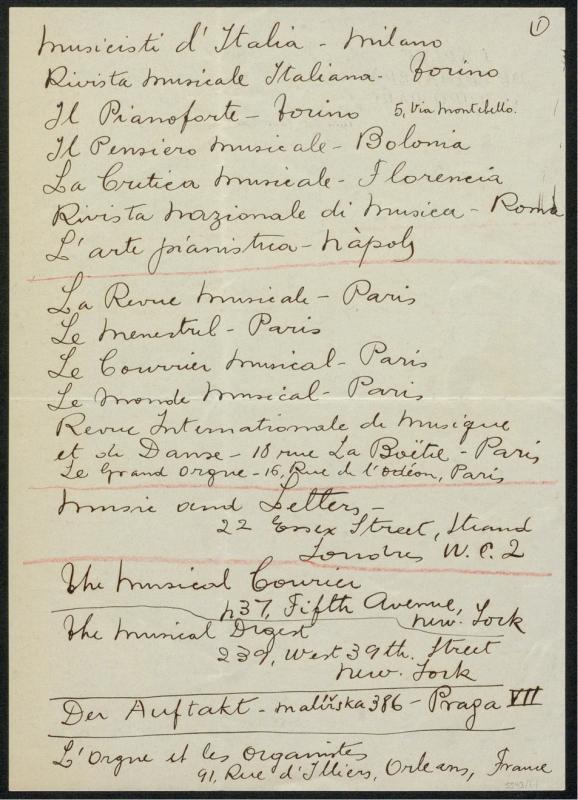 1
Musicisti d'Italia - Milano
Rivista Musicale Italiana - Torino
Il Pianoforte - Torino 5, Via Montebello.
Il Pensiero Musicale - Bolonia
La Critica Musicale - Florencia
Rivista Nazionale di Musica - Roma
L'arte pianistica - Nàpols
La Revue Musicale - Paris
Le Menestrel - Paris
Le Courrier Musical - Paris
Le Monde Musical - Paris
Revue Internationale de Musique
et de Danse - 10 rue La Boëtie - Paris
Le Grand Orgue - 16, Rue de l'Odéon, Paris
Music and Letters -
22 Essex Street, Strand
Londres W. C. 2
The Musical Courier
437, Fifth Avenue,
New. York
The Musical Digest
239, West 39th. Street
New. York
Der Auftakt - Malířska 386 - Praga VII
L'Orgue et les Organistes
91, Rue d'Illiers, Orleans, France